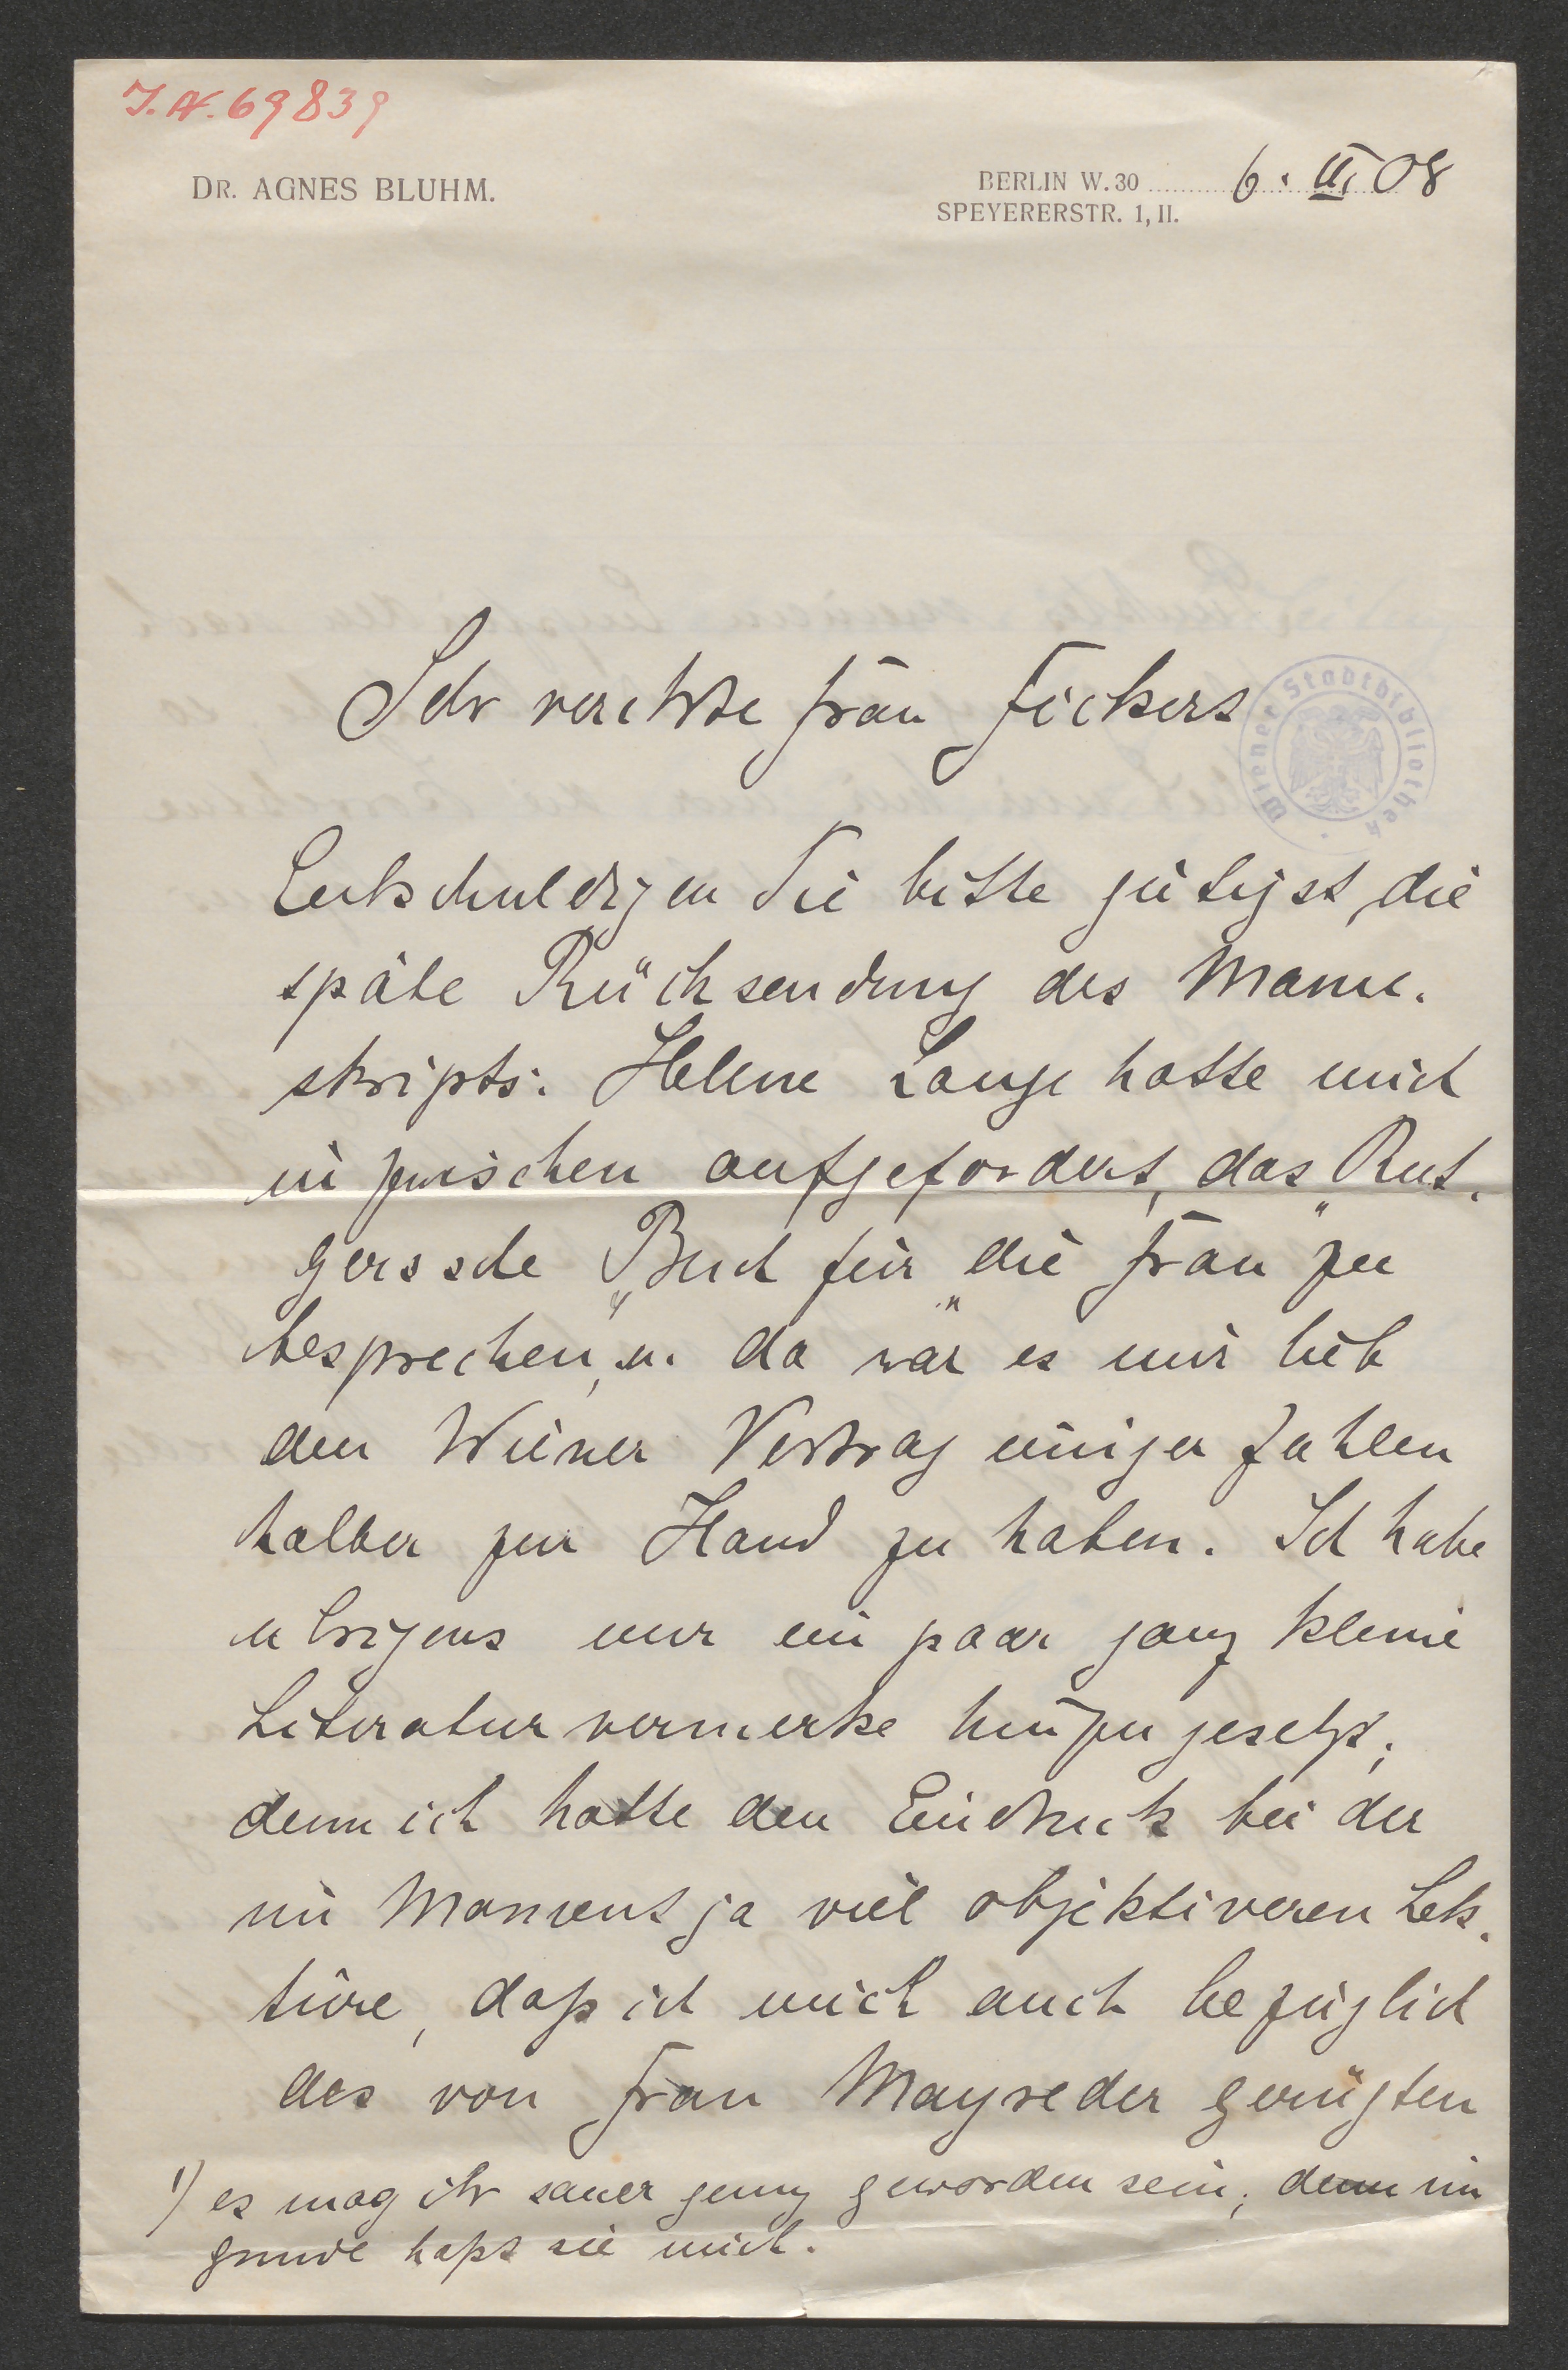 I.N. 69839
DR. AGNES BLUHM.
BERLIN W. 30 6. II. 08
SPEYERERSTR. 1, II.
Sehr verehrte Frau Fickert
Wiener Stadtbibliothek
Entschuldigen Sie bitte gütigst, die
späte Rücksendung des Manu-
skripts. Helene Lange hatte mich
inzwischen aufgefordert, das „Rut-
gerssche „Buch für „die Frau“ zu
besprechen, u. da war es mir lieb
den Wiener Vortrag einiger Zahlen
halber zur Hand zu haben. Ich habe
übrigens nur ein paar ganz kleine
Literaturvermerke hinzugesetzt;
denn ich hatte den Eindruck bei der
im Moment ja viel objektiveren Lek-
türe, daß ich mich auch bezüglich
des von Frau Mayreder gerügten
1) es mag ihr sauer genug geworden sein; denn im
Grunde haßt sie mich.